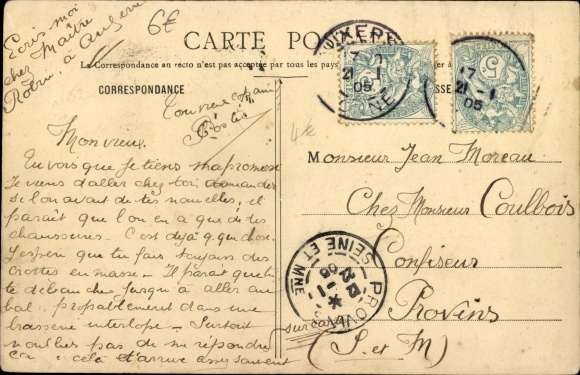 Ecris moi
chez Maître
à Auxerre
6€
CARTE POS
La Correspondance au recto n'est pas acceptée par tous les pays
CORRESPONDANCE
SSE
Ton vieux copain
4€
Mon vieux.
Tu vois que je tiens ma promesse
Je viens d'aller chez toi demander
si l'on avait de tes nouvelles, il
paraît que l'on en a que de tes
chaussures - C'est déjà q. que chose.
J'espère que tu fais toujours des
crottes en masse - Il paraît que tu
te débauches jusqu'à aller au
bal. probablement dans une
brasserie interlope - Surtout
n'oublies pas de me répondre
car cela t'arrive assez souvent
Monsieur Jean Moreau
Chez Monsieur Coulbois
Confiseur
Provins
(S. et M)
AUXERRE
21 -1
05
YONNE
5
17
21 -1
05
PROVINS
SEINE ET MNE
05